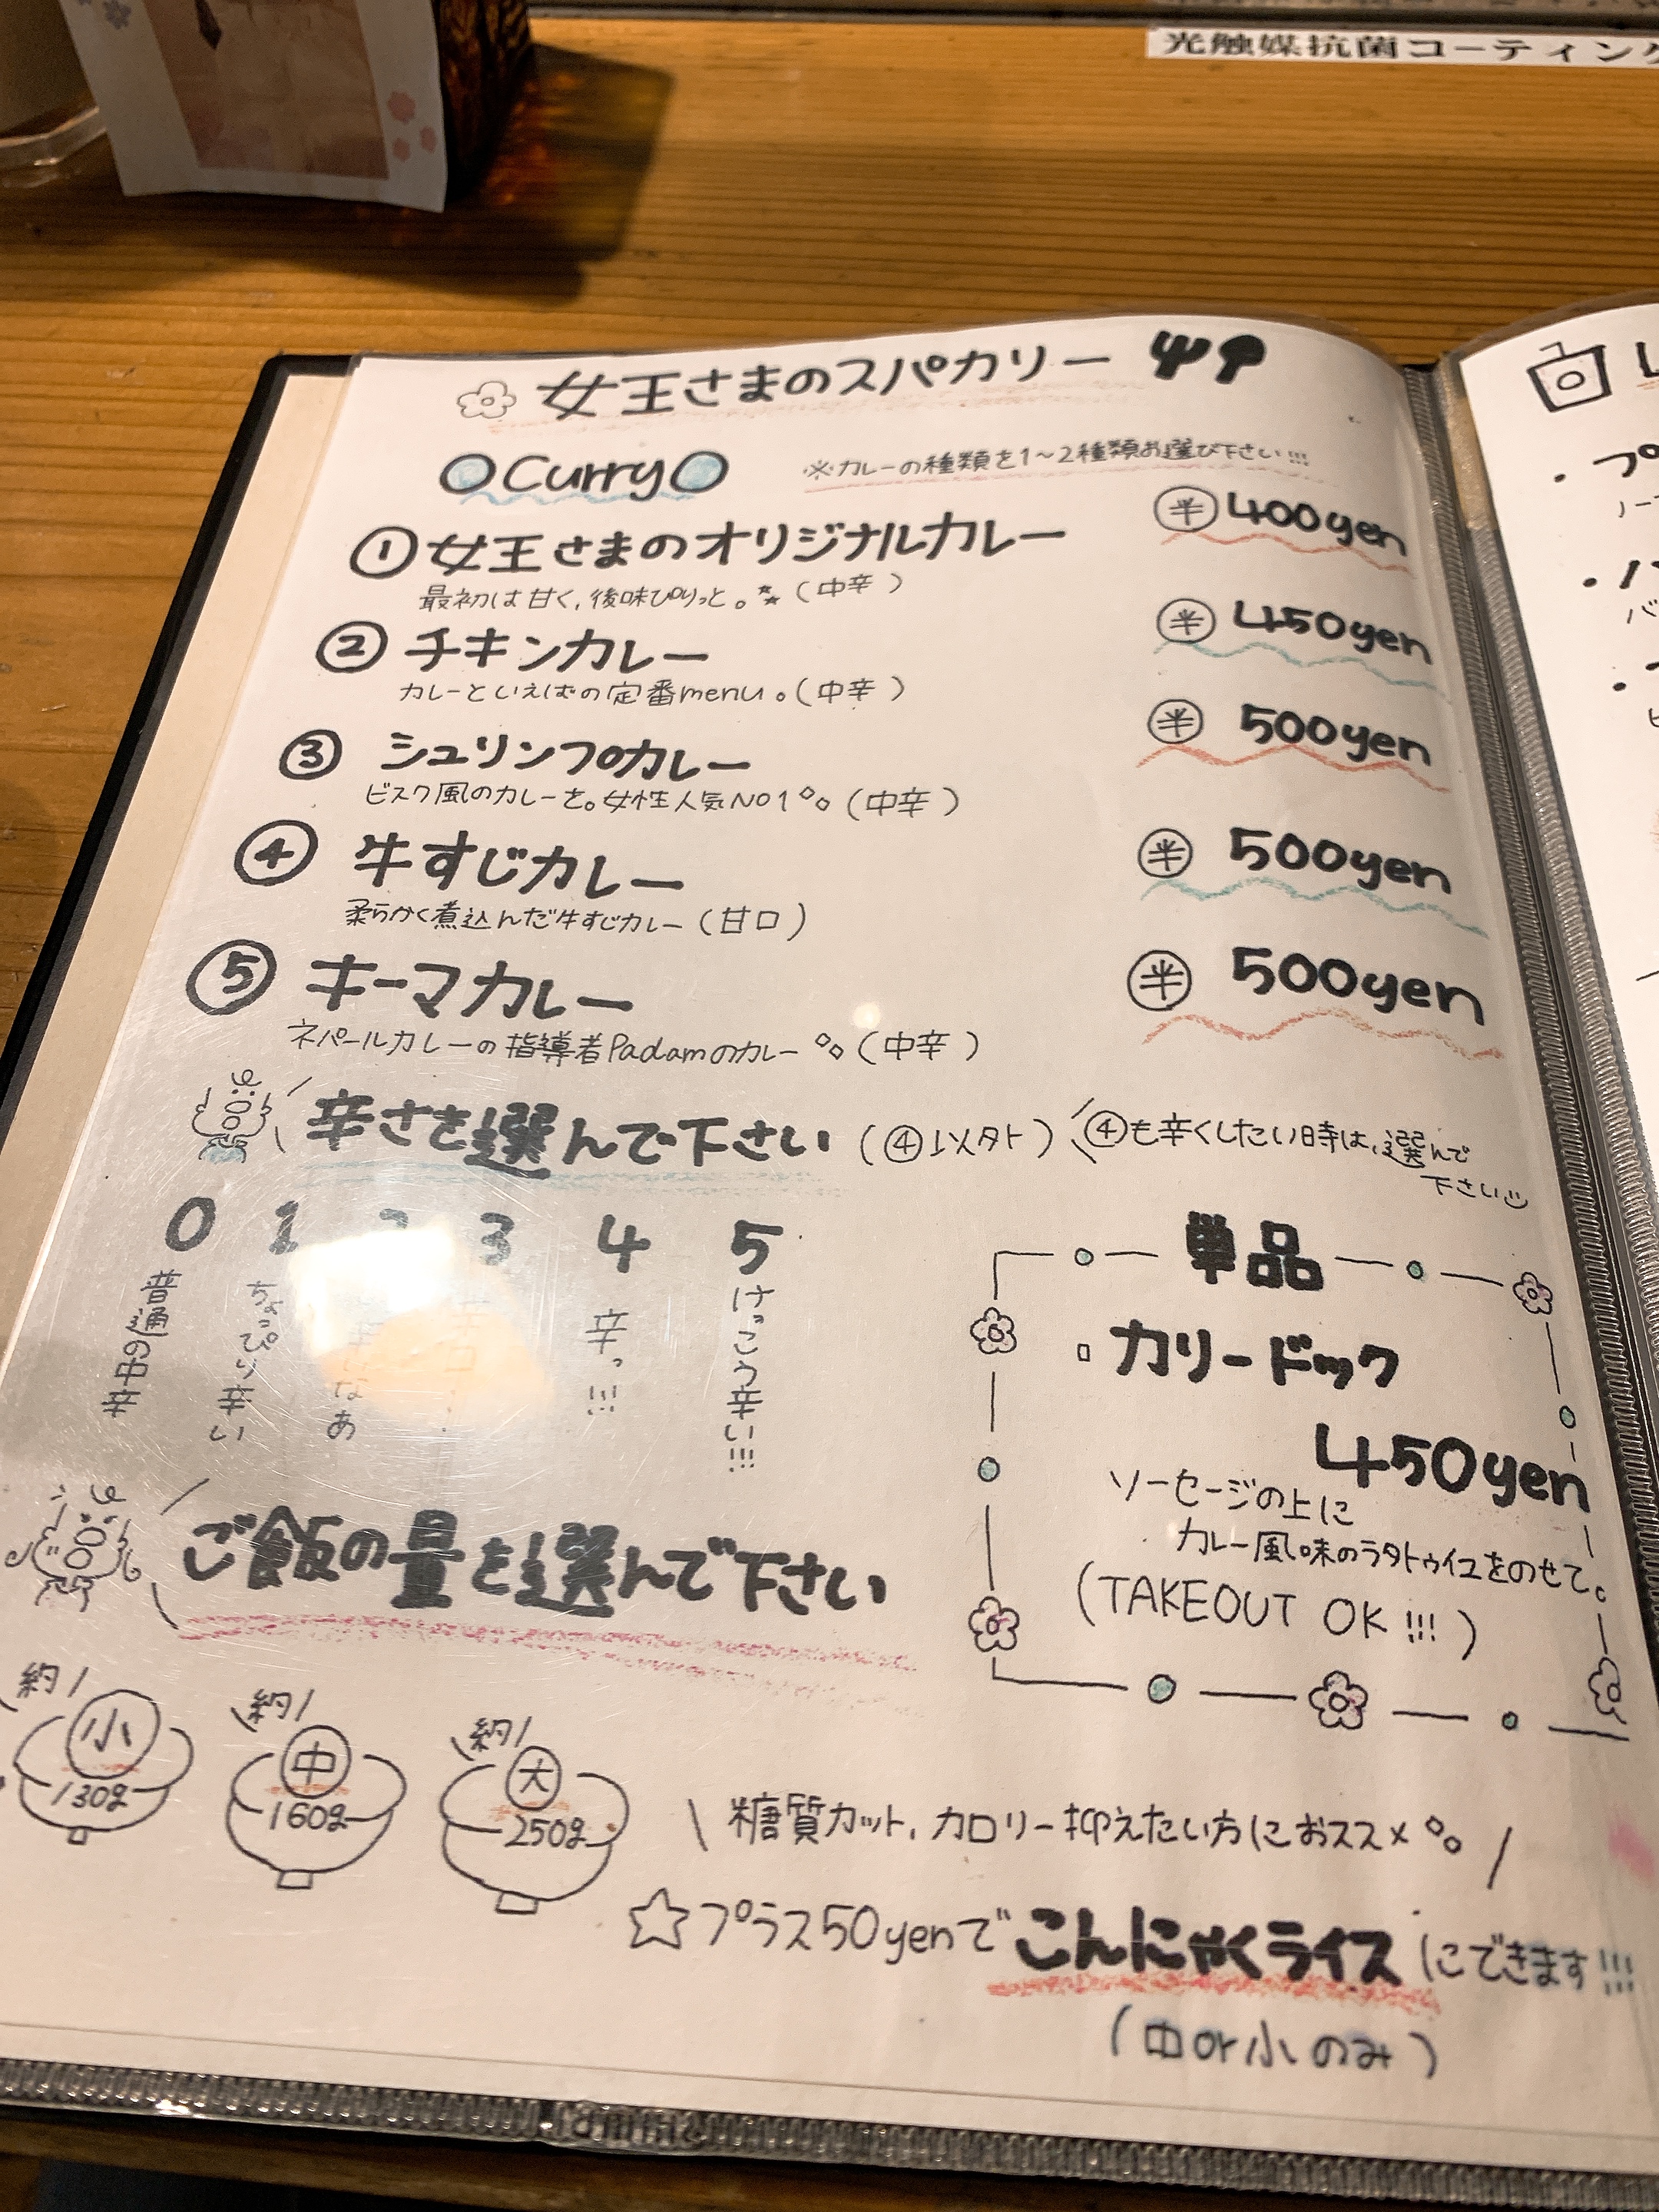 光触媒抗菌コーティング
女王さまのスパカリー
Curry
※カレーの種類を1~2種類お選び下さい!!!
①女王さまのオリジナルカレー 半 400yen
最初は甘く,後味ぴりっと。(中辛)
② チキンカレー 半 450yen
カレーといえばの定番menu。(中辛)
③ シュリンプカレー 半 500yen
ビスク風のカレーを。女性人気NO1 (中辛)
④ 牛すじカレー 半 500yen
柔らかく煮込んだ牛すじカレー(甘口)
⑤ キーマカレー 半 500yen
ネパールカレーの指導者Padamのカレー (中辛)
辛さを選んで下さい (④以外) ④も辛くしたい時は,選んで
下さい
0 1 2 3 4 5
普通の中辛
ちょっぴり辛い
なあ
辛っ!!!
けっこう辛い!!!
単品
カリードック
450yen
ソーセージの上に
カレー風味のラタトゥイユをのせて。
(TAKEOUT OK!!!)
ご飯の量を選んで下さい
約 小 130g
約 中 160g
約 大 250g
糖質カット,カロリー抑えたい方におススメ
☆プラス50yenでこんにゃくライスにできます!!!
(中or小のみ)